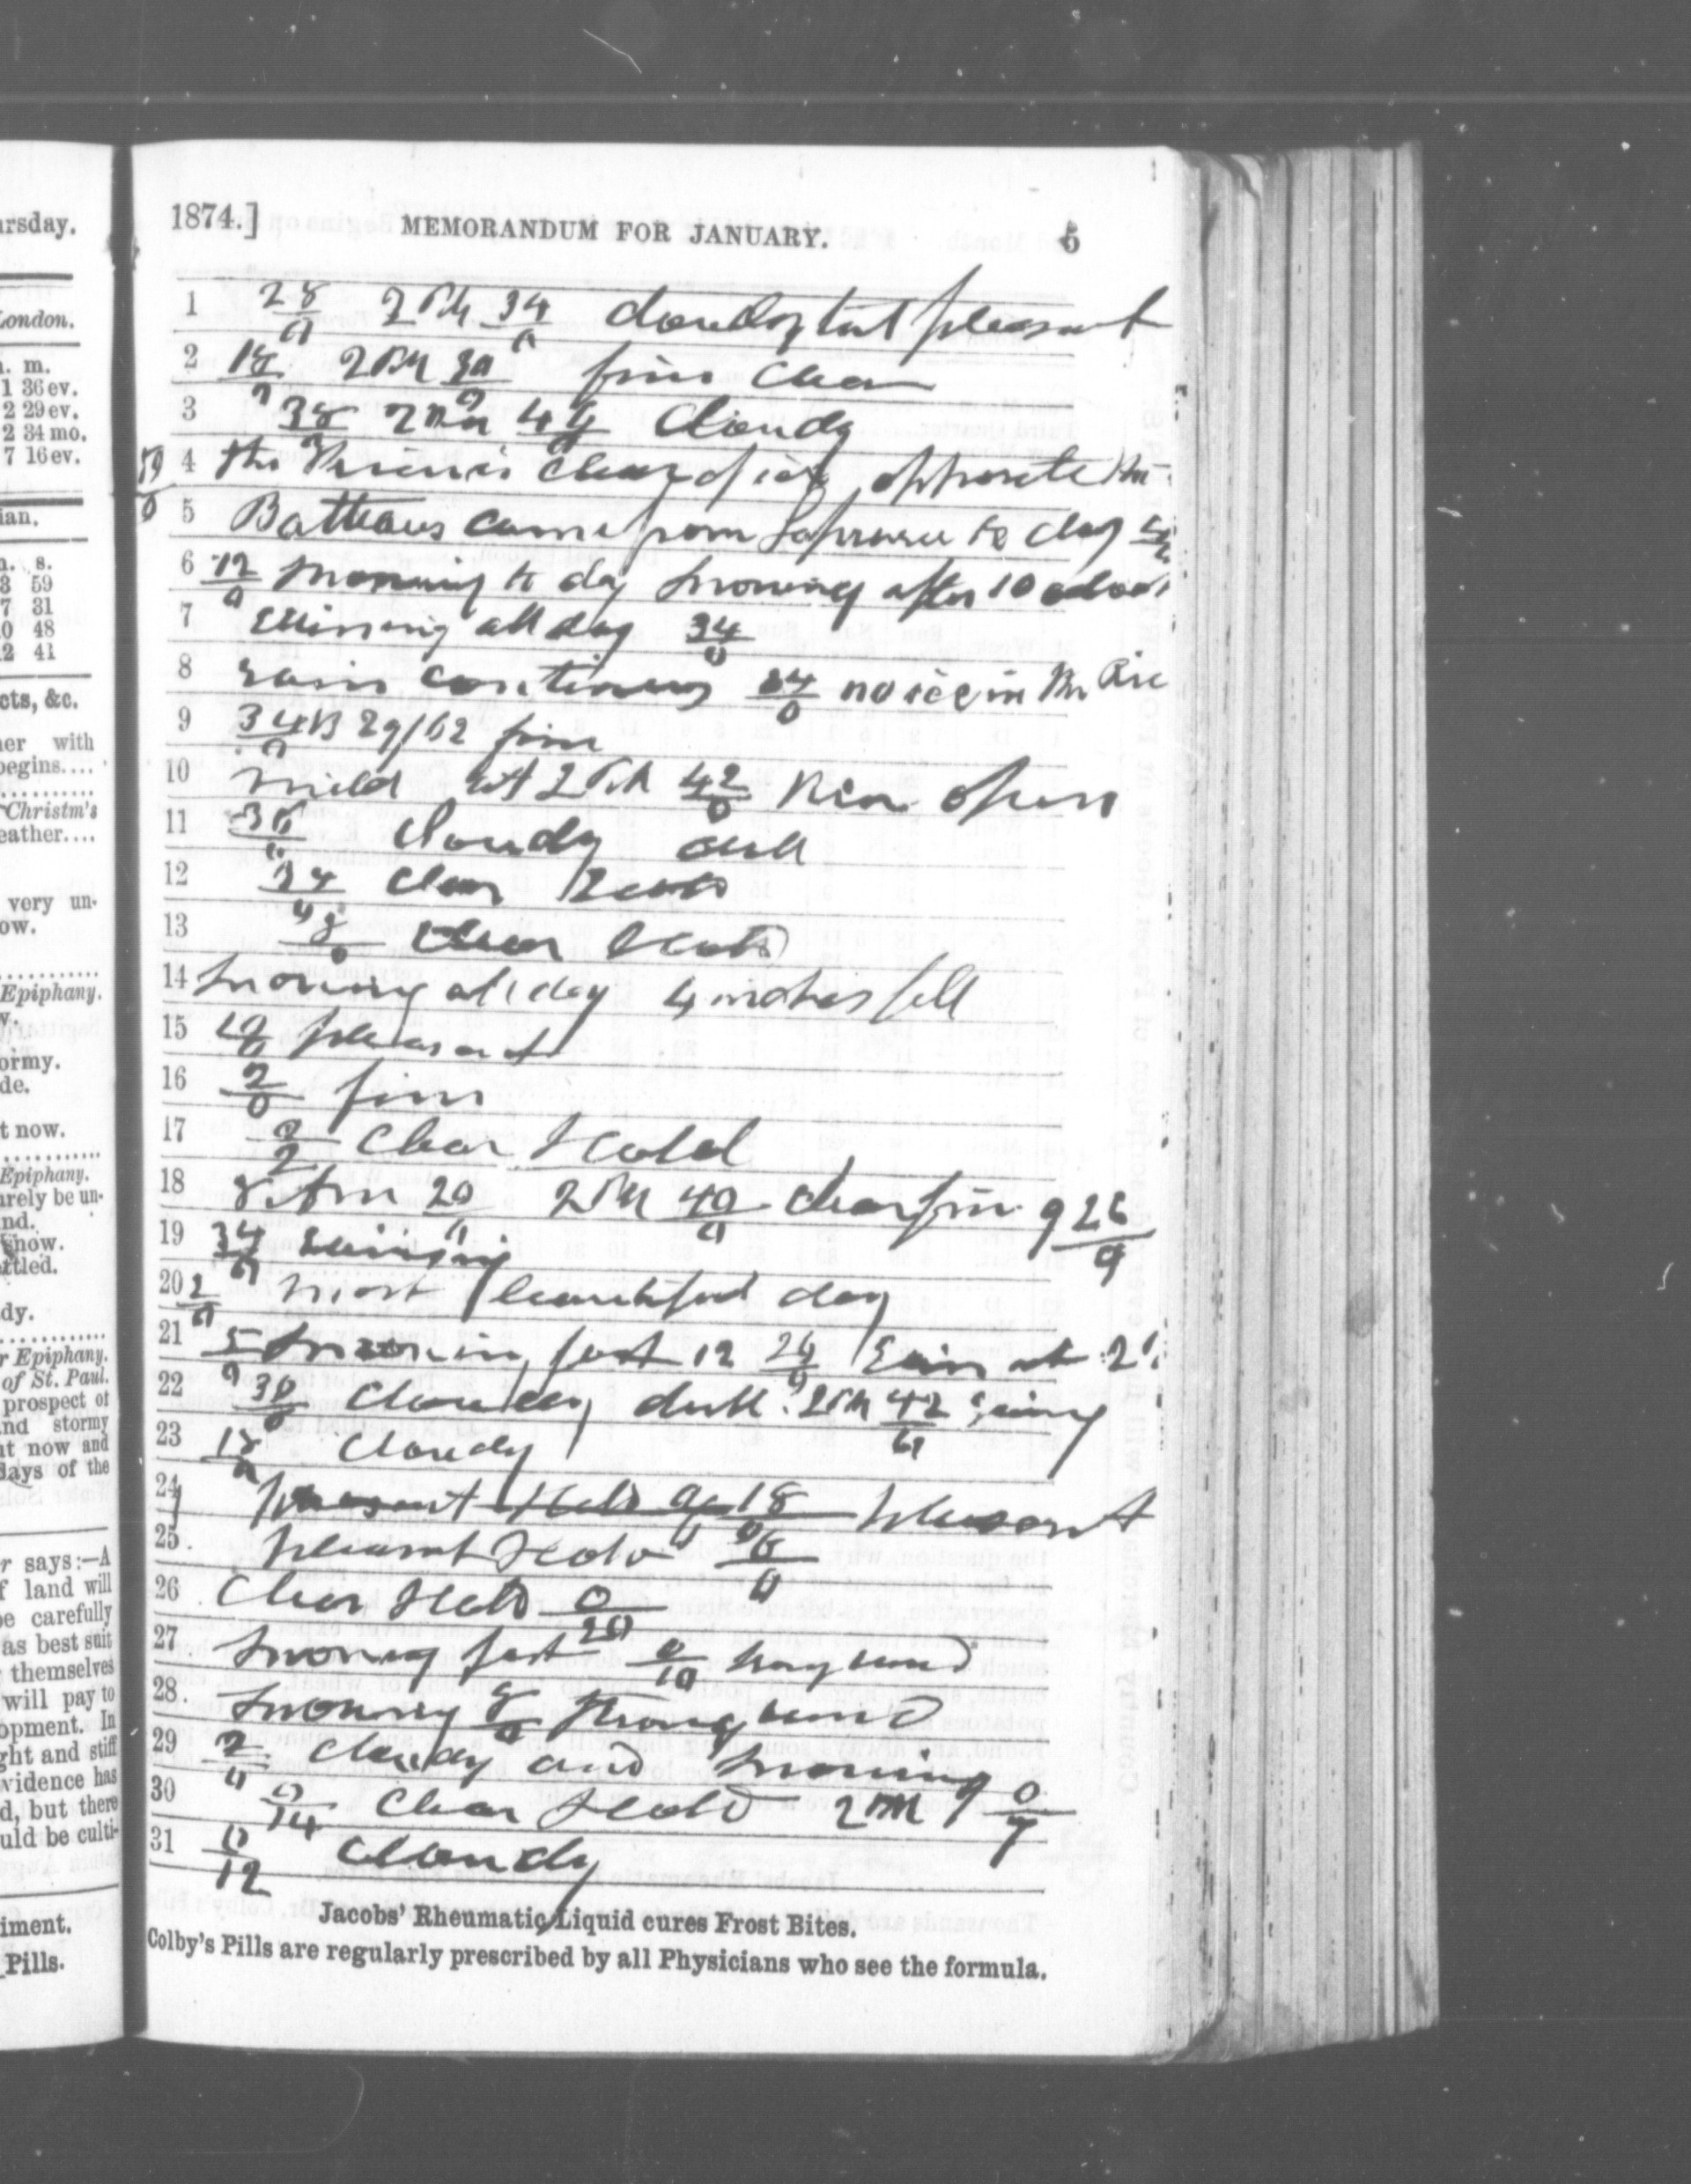 ursday.
London.
. m.
1 36 ev.
2 29 ev.
2 34 mo.
7 16 ev.
ian.
. s.
3 59
7 31
0 48
2 41
cts, &c.
er with
begins....
Christm's
eather....
very un-
ow.
Epiphany.
ormy.
de.
t now.
Epiphany.
rely be un-
nd.
snow.
ttled.
dy.
r Epiphany.
of St. Paul.
prospect of
nd stormy
t now and
days of the
r says:—A
f land will
be carefully
as best suit
themselves
will pay to
opment. In
ght and stiff
vidence has
d, but there
uld be culti-
iment.
Pills.
1874.] MEMORANDUM FOR JANUARY. 5
1 28/0 2 PM 34/0 cloudy but pleasant
2 18/0 2 PM 30/0 fine clear
3 38/0 2 PM 44 Cloudy
4 the River is clear of ice opposite the
5 Batteaus came from to day
6 12/0 morning to day snowing after 10 oclock
7 all day 34/0
8 rain continues 34/0 no ice in the Riv
9 34/0 B 29/62 fine
10 mild at 2 PM 42/0 River open
11 36/0 Cloudy dull
12 34 clear & cold
13 8/0 clear & cold
14 Snowing all day 4 inches fell
15 10/0 pleasant
16 2/0 fine
17 0/2 Clear & Cold
18 8 Am 20/0 2 PM 40/0 clear fine 9 26/0
19 34/0 raining
20 2/0 most beautiful day
21 5/0 fast 12 24/0 rain at 2
22 30/0 cloudy dull 2 PM 42/0
23 18/0 cloudy
24 pleasant & cold 18/0 pleasant
25 pleasant & cold 6/0
26 Clear & cold 0/20
27 Snowing fast 0/10 wind
28 Snowing 8/0 strong wind
29 2/0 cloudy and snowing
30 0/14 Clear & cold 2 PM 0/7
31 0/12 Cloudy
Jacobs' Rheumatic Liquid cures Frost Bites.
Colby's Pills are regularly prescribed by all Physicians who see the formula.